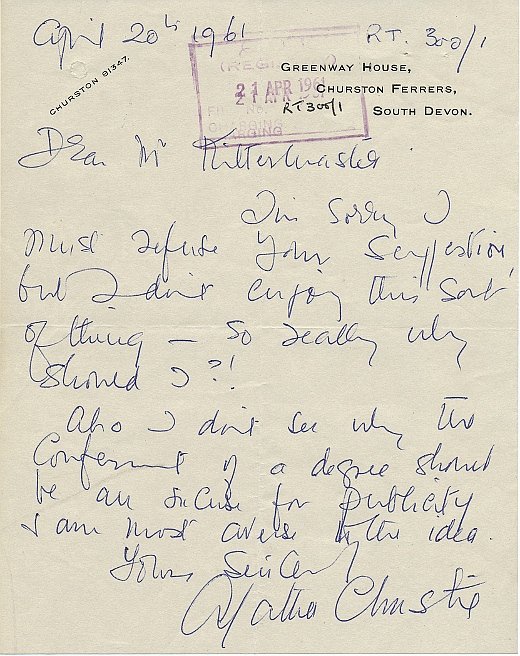 April 20th 1961
RT. 300/1
CHURSTON 81347.
(REGISTRY)
21 APR 1961
21 APR 1961
RT300/1
GREENWAY HOUSE,
CHURSTON FERRERS,
SOUTH DEVON.
Dear Mr Kittermaster
I'm sorry I
must refuse your suggestion
but I don't enjoy this sort
of thing — so really why
should I ?!
Also I don't see why the
Conferment of a degree should
be an excuse for publicity
I am most averse to the idea.
Yours Sincerely
Agatha Christie